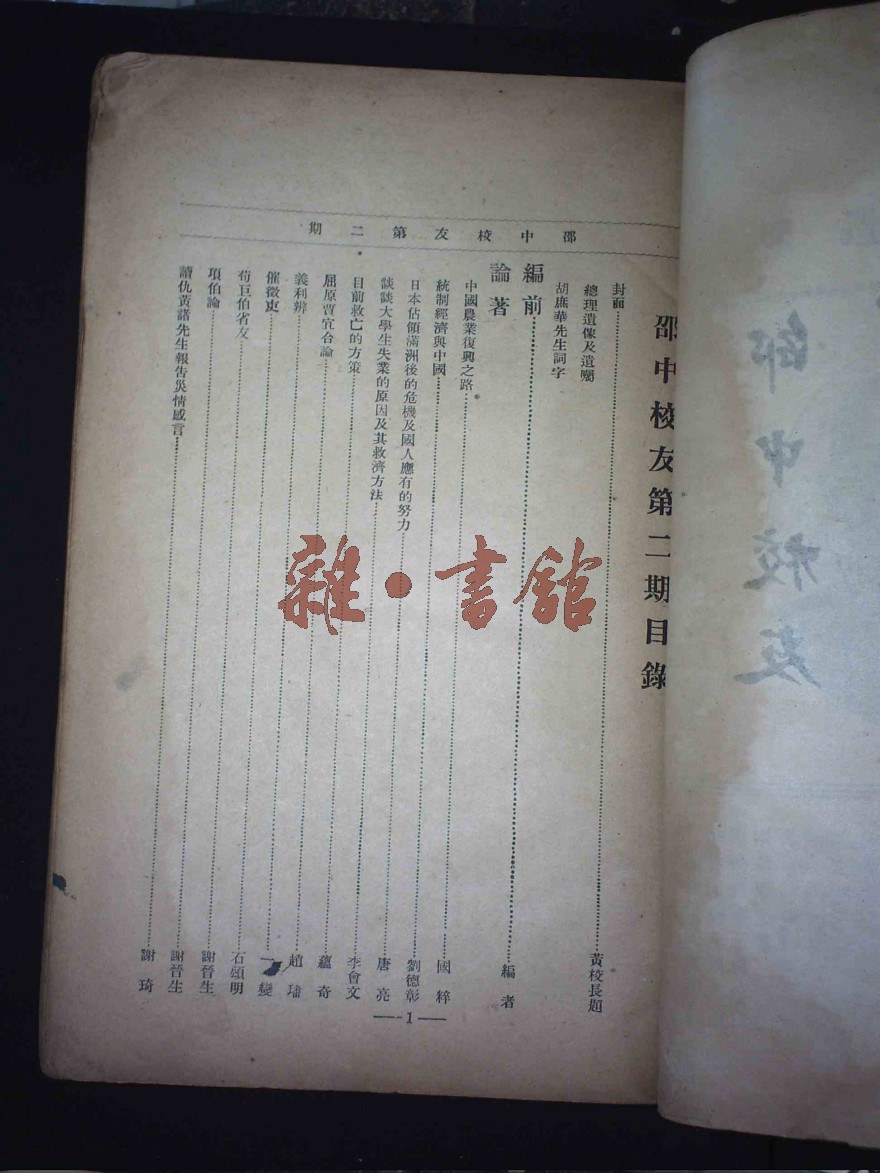 邵中校友第二期
邵中校友第二期目錄
封面……黃校長題
總理遺像及遺囑
胡庶華先生詞字
編前……編者
論著
中國農業復興之路……國粹
統制經濟與中國……劉德彰
日本佔領滿洲後的危機及國人應有的努力……唐亮
談談大學生失業的原因及其救濟方法……李會文
目前救亡的方策……蘊奇
屈原賈宜合論……趙璠
義利辨……一變
催徵吏……石頭明
荀巨伯省友……謝晉生
項伯論……謝晉生
讀仇黃諸先生報告災情感言……謝琦
—1—
雜·書館
邵中校友